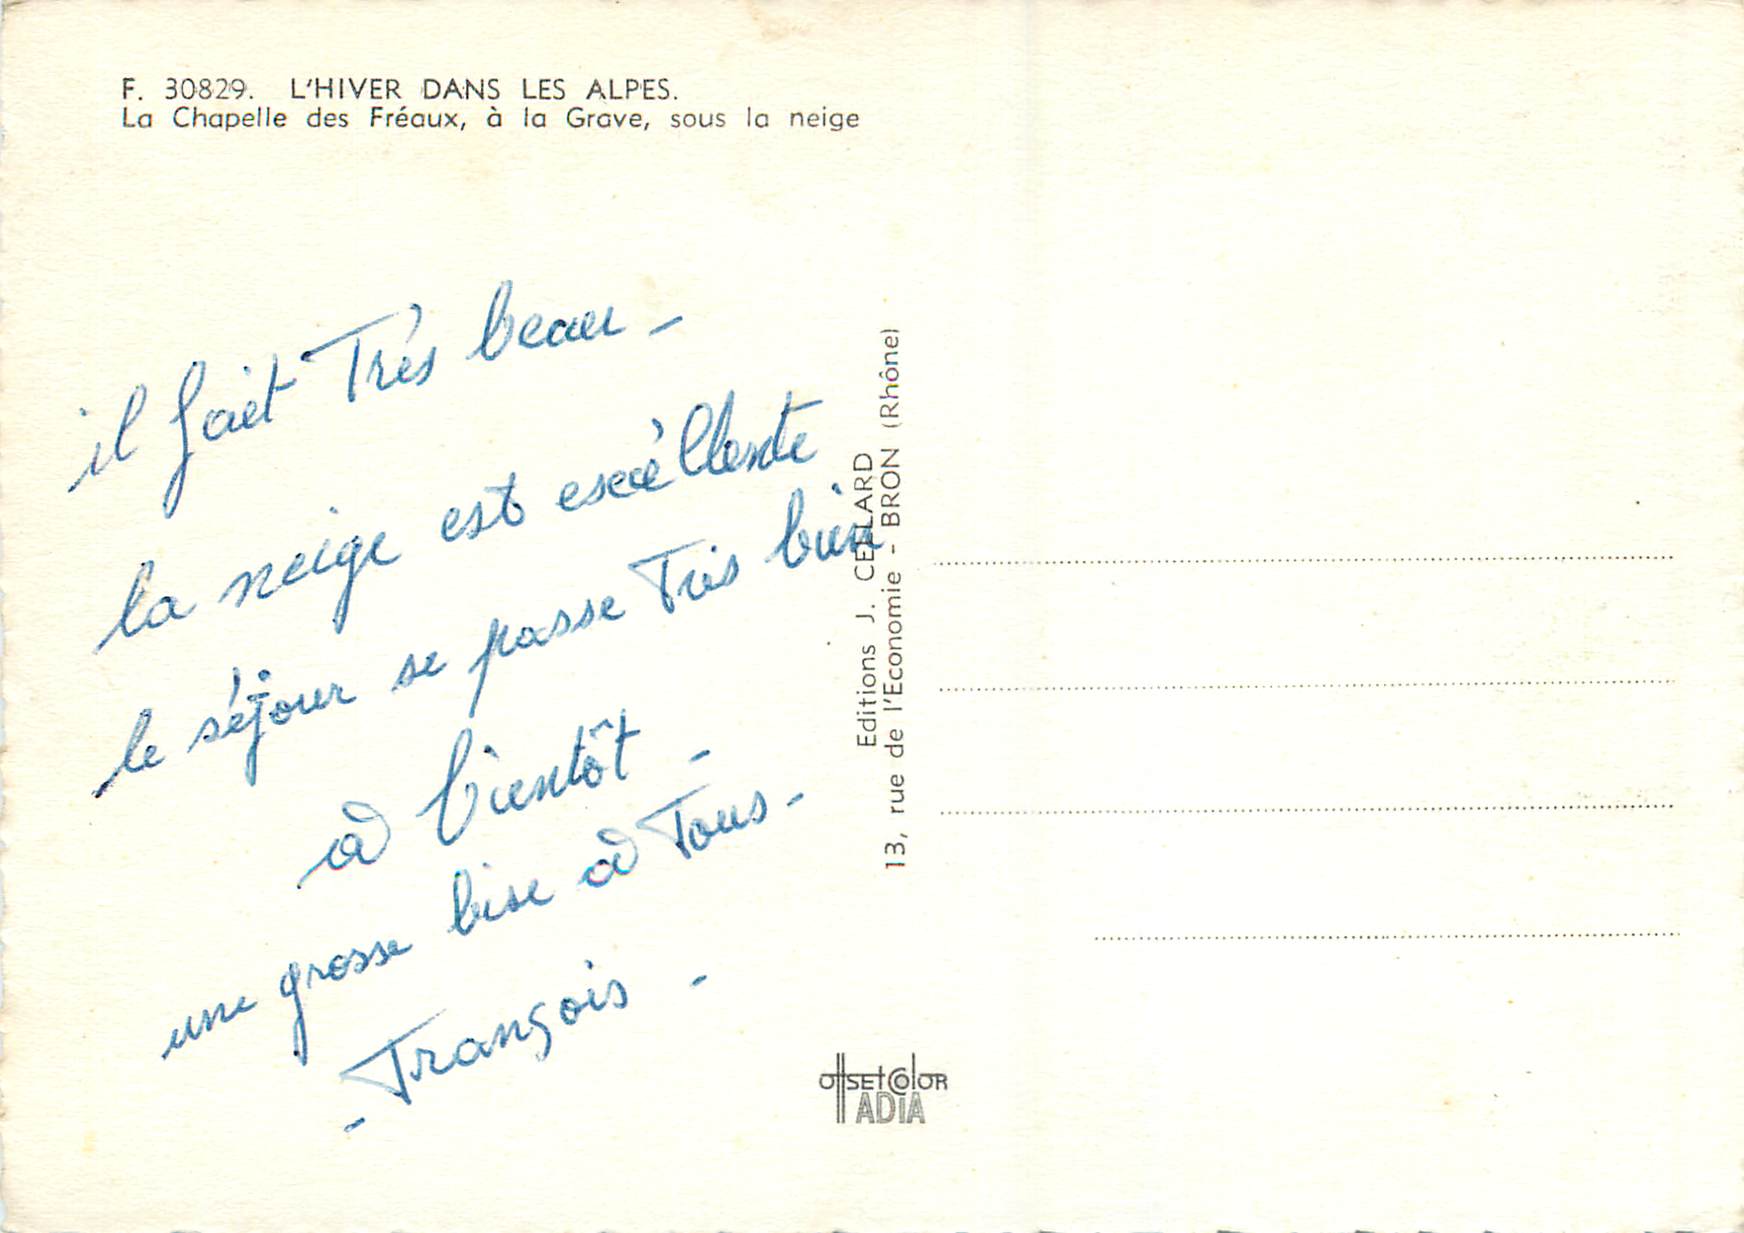 F. 30829. L'HIVER DANS LES ALPES.
La Chapelle des Fréaux, à la Grave, sous la neige
il fait Très beau -
la neige est excéllente
le séjour se passe Très bien
à bientôt -
une grosse bise à Tous -
- François -
Editions J. CELLARD
13, rue de l'Economie - BRON (Rhône)
OffSEtCOlOR
IADIA